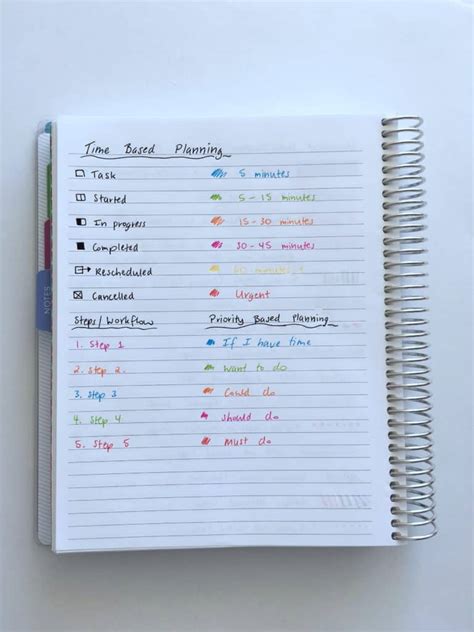 Time Based Planning
Task 5 minutes
Started 5 - 15 minutes
In progress 15 - 30 minutes
Completed 30 - 45 minutes
Rescheduled 60 minutes
Cancelled Urgent
Steps/Workflow Priority Based Planning
1. Step 1 If I have time
2. Step 2. Want to do
3. Step 3 Could do
4. Step 4 Should do
5. Step 5 Must do
NOTES